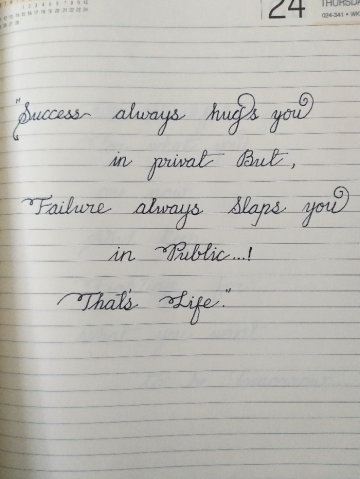 24
THURSDA
"Success always hugs you
in privat But,
Failure always Slaps you
in Public...!
That's Life."